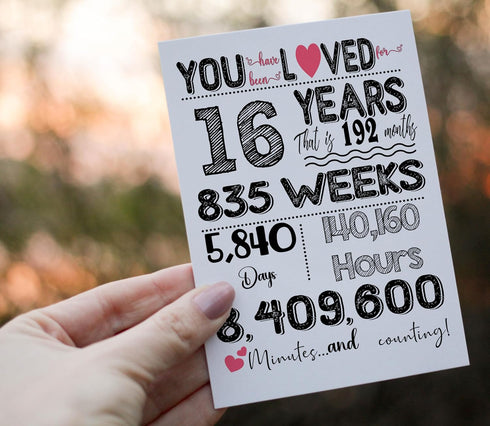 YOU have been LOVED for
16 YEARS
That is 192 months
835 WEEKS
5,840 140,160
Days Hours
8,409,600
Minutes...and counting!